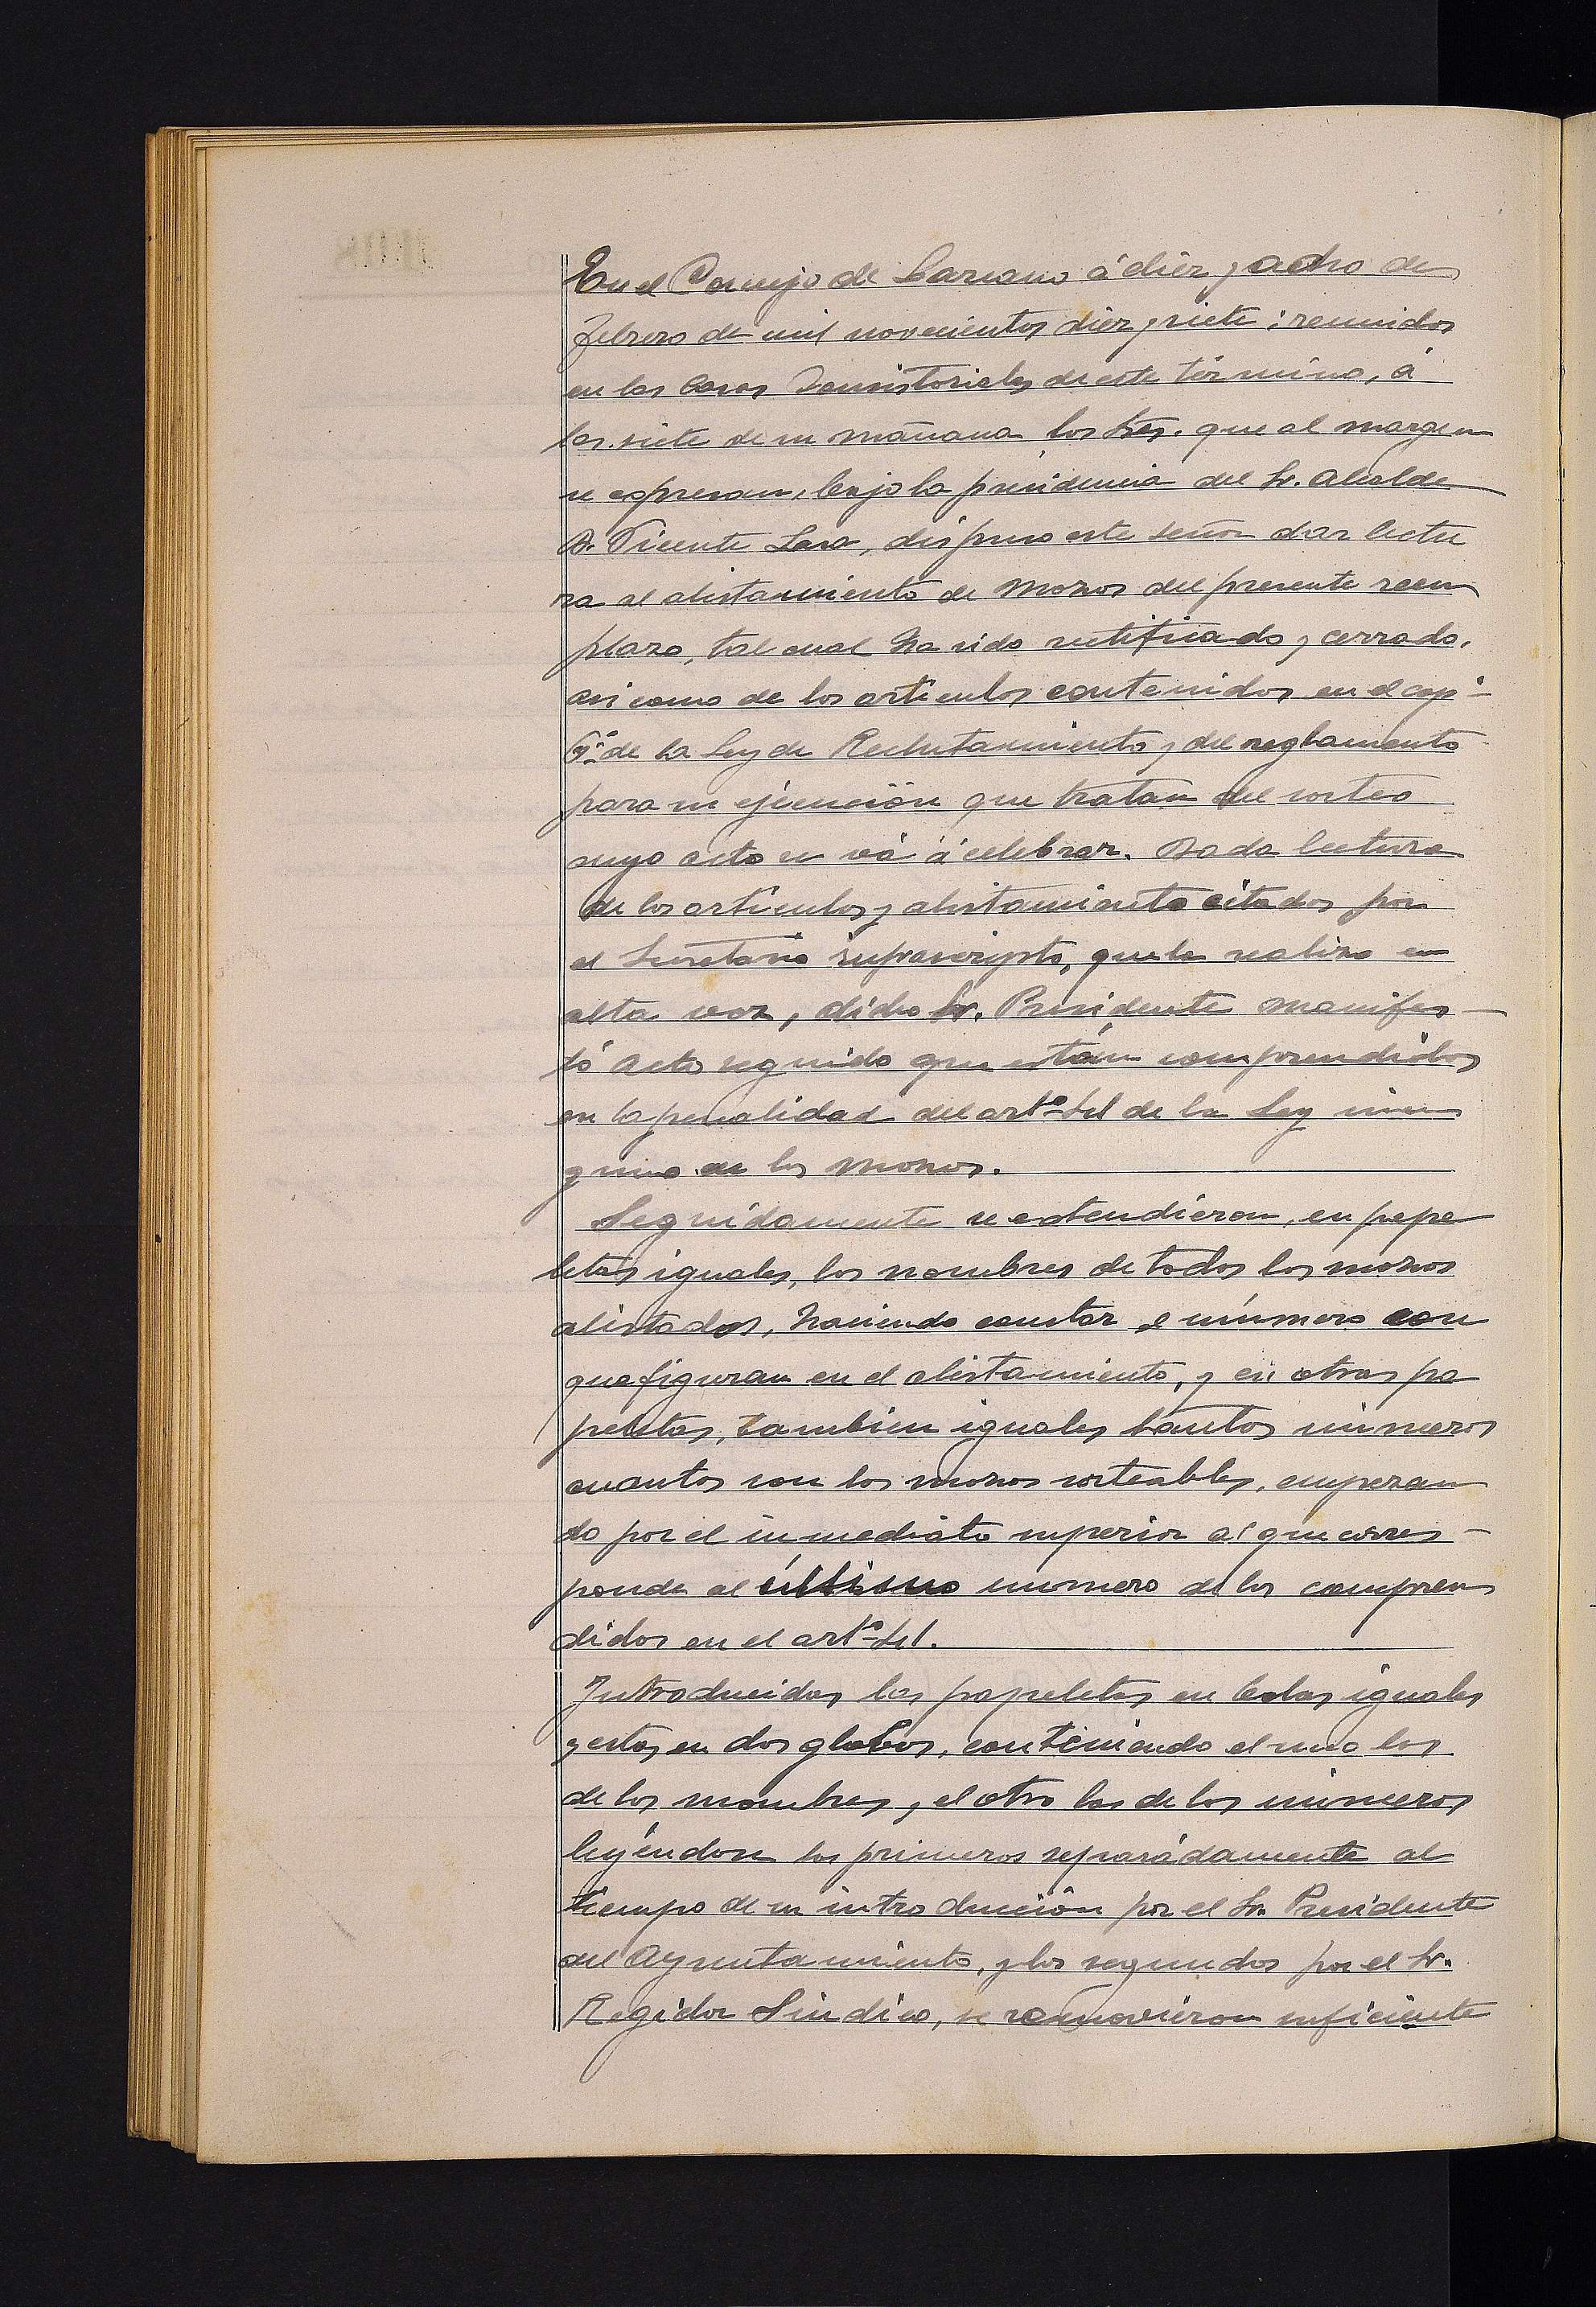 En el Concejo de Laracana á diez y ocho de
febrero de mil novecientos diez y siete; reunidos
en las Casas Consistoriales de este término, á
las siete de su mañana los Sres. que al margen
se expresan, bajo la presidencia del Sr. Alcalde
D. Vicente Lasa, dispuso este señor dar lectu
ra al alistamiento de mozos del presente reem
plazo, tal cual ha sido rectificado y cerrado,
asi como de los articulos contenidos en el cap.º
de la Ley de Reclutamiento y del reglamento
para su ejecución que tratan del sorteo
cuyo acto se vá á celebrar. Dada lectura
de los artículos y alistamiento citados por
el Secretario infrascripto, que la realizo en
alta voz, dicho Sr. Presidente manifes-
tó acto seguido que están comprendidos
en la penalidad del artº de la Ley nin
guno de los mozos.
Seguidamente se extendieron, en pape
letas iguales, los nombres de todos los mozos
alistados, haciendo constar el número con
que figuran en el alistamiento, y en otras pa
peletas, tambien iguales tantos números
cuantos son los mozos sorteables, empezan
do por el inmediato superior al que corres-
ponde al último numero de los compren
didos en el artº
Introducidas las papeletas en bolas iguales
y estas en dos globos, conteniendo el uno las
de los nombres, y el otro las de los números
leyéndose los primeros separádamente al
tiempo de su introducción por el Sr. Presidente
del Ayuntamiento, y los segundos por el Sr.
Regidor Síndico, se removieron suficiente